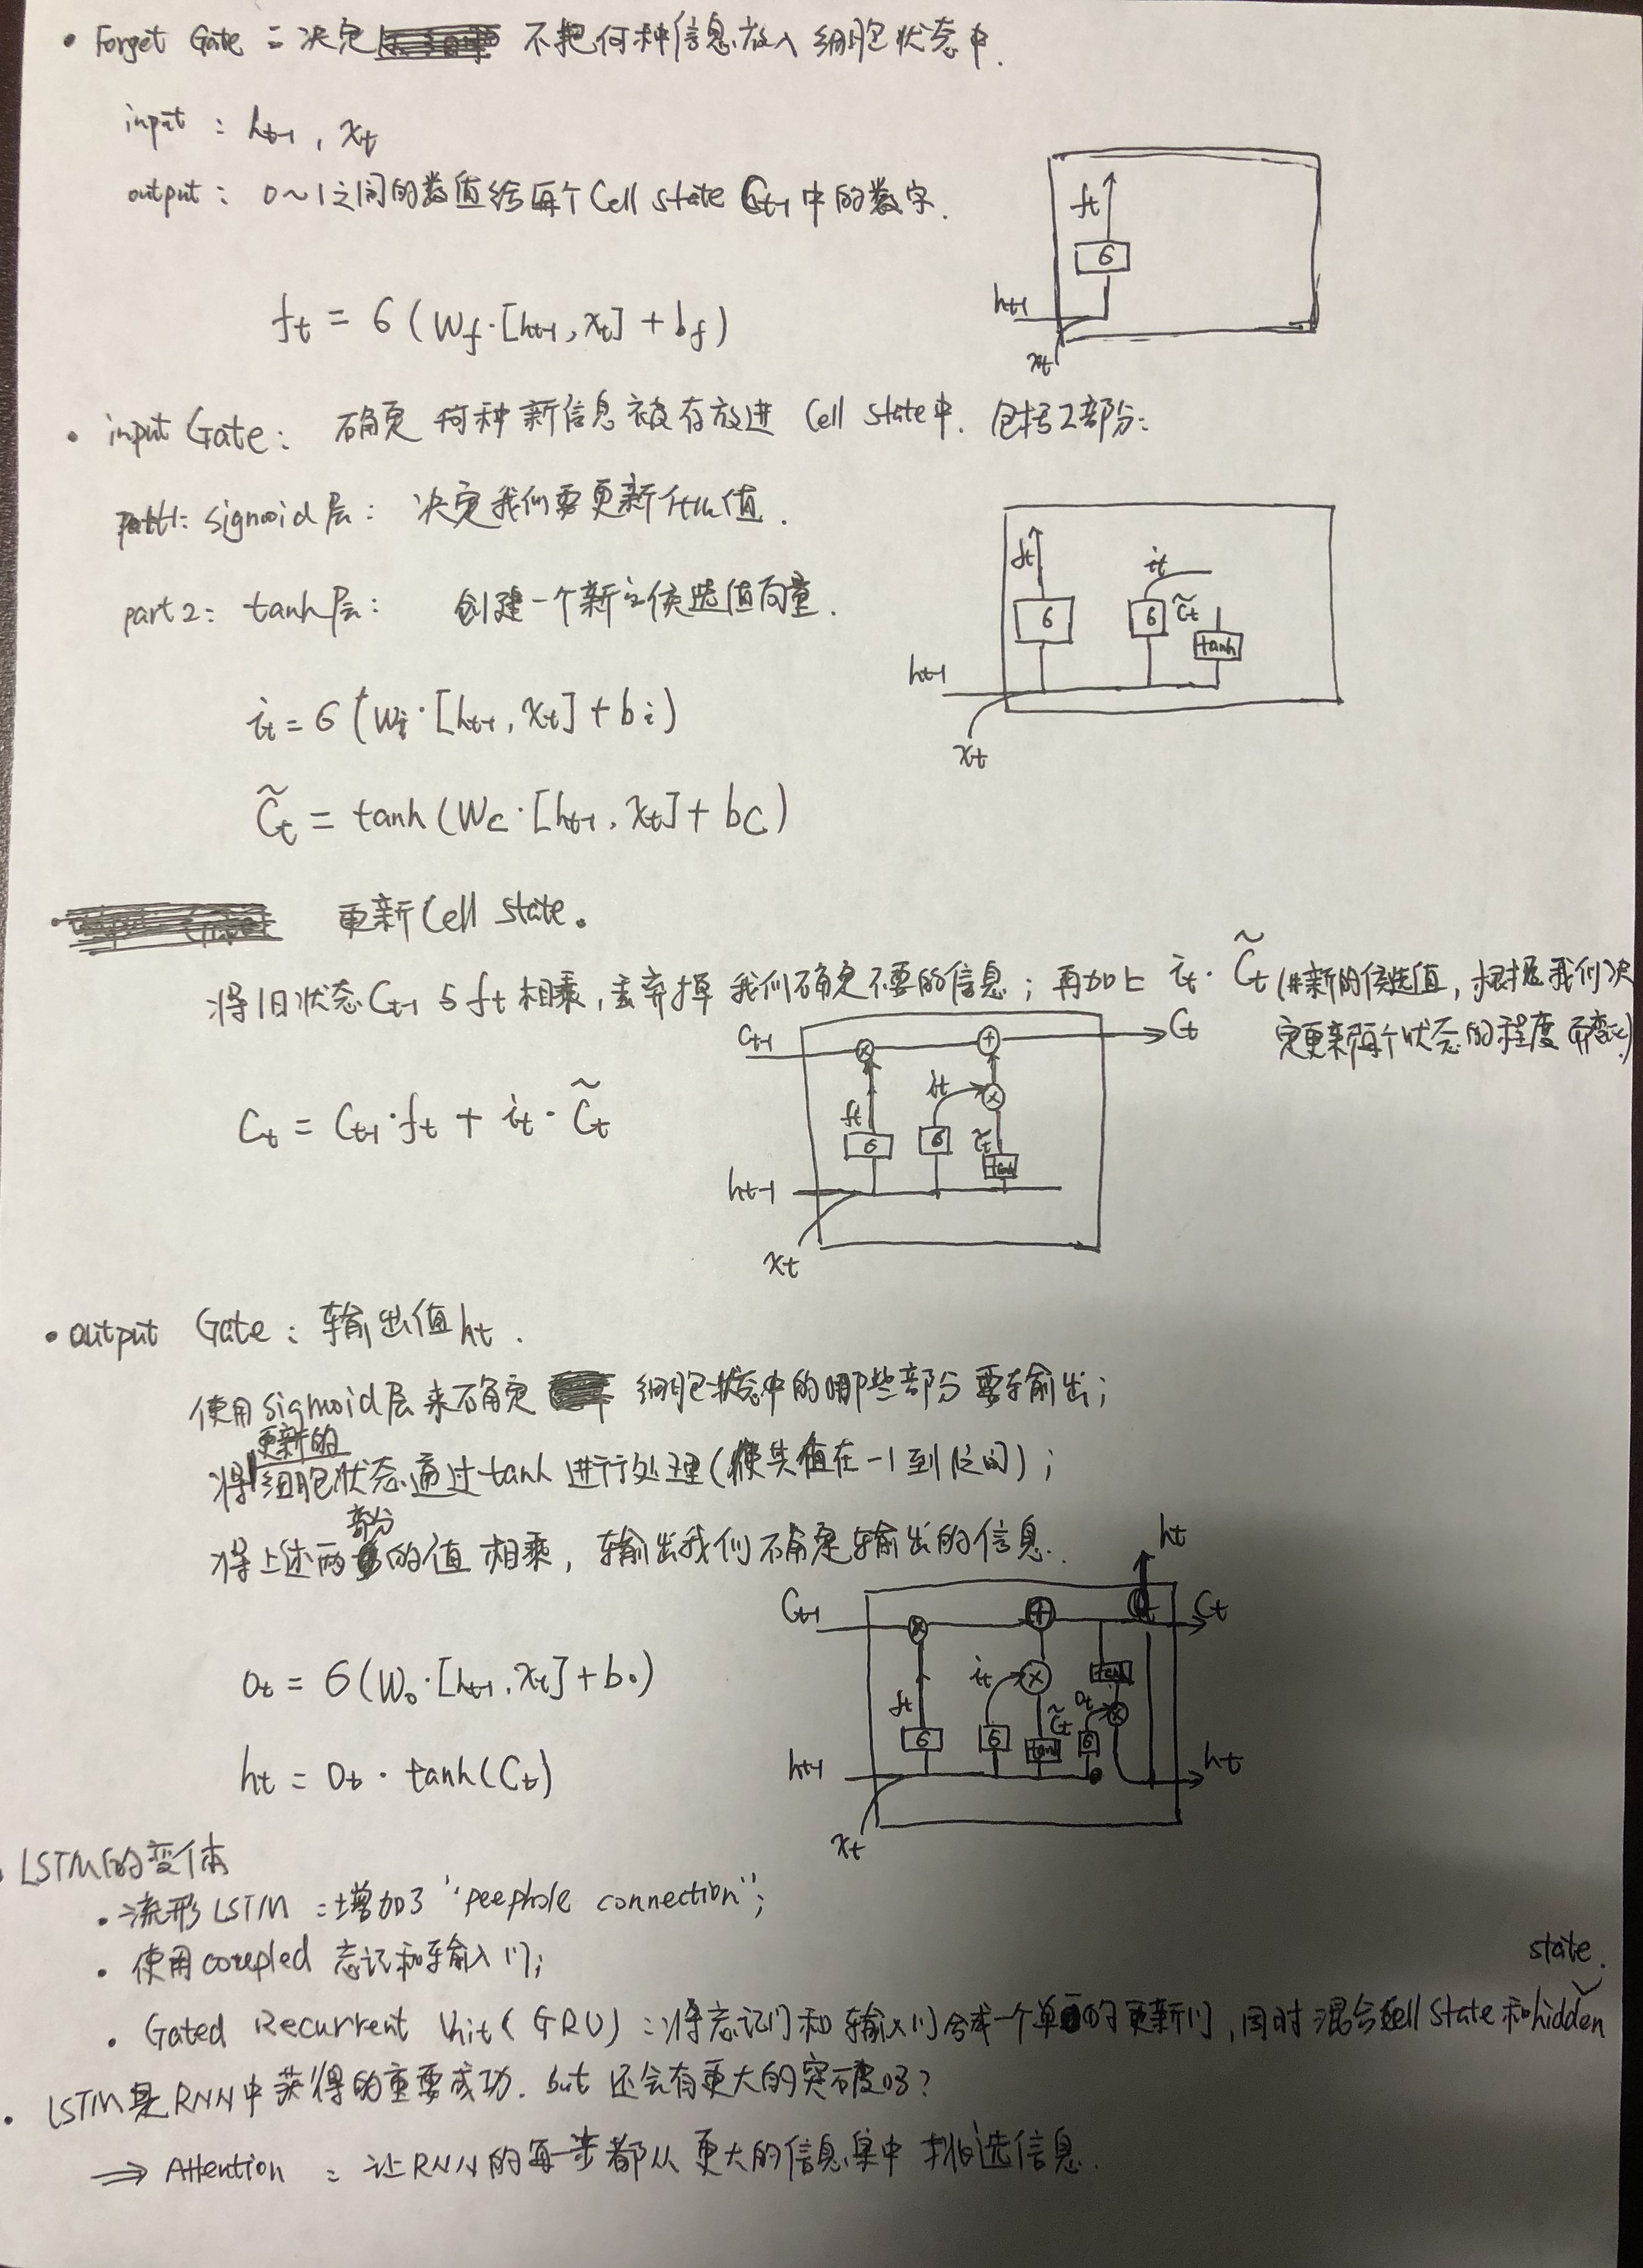 • Forget Gate : 决定 不把何种信息放入细胞状态中.
input : ht-1 , xt
output : 0~1之间的数值给每个Cell state Ct-1 中的数字.
ft
6
ht-1
xt
ft = 6 ( Wf · [ht-1, xt] + bf )
• input Gate : 确定 何种新信息被存放进 Cell state中. 包括2部分:
part1: sigmoid层 : 决定我们要更新什么值.
part2: tanh层 : 创建一个新的候选值向量.
ft
it
6
6
C̃t
tanh
ht-1
xt
it = 6 (Wi · [ht-1, xt] + bi)
C̃t = tanh (Wc · [ht-1, xt] + bC)
更新 Cell State.
将旧状态Ct-1 与 ft 相乘, 丢弃掉 我们确定不要的信息; 再加上 it · C̃t (#新的候选值, 根据我们决
定更新每个状态的程度而变化)
Ct-1
Ct
ft
it
C̃t
6
6
tanh
ht-1
xt
Ct = Ct-1 · ft + it · C̃t
• output Gate : 输出值 ht .
使用sigmoid层来确定 细胞状态中的哪些部分 要输出;
更新的
将细胞状态通过tanh进行处理(使其值在-1到1之间);
部分
将上述两的值相乘, 输出我们确定输出的信息.
ht
Ct-1
Ct
tanh
it
ot
ft
C̃t
6
6
tanh
6
ht-1
ht
xt
ot = 6 (Wo · [ht-1, xt] + bo)
ht = Ot · tanh (Ct)
• LSTM的变体
• 流形LSTM : 增加了 "peephole connection";
• 使用coupled 忘记和输入门;
state.
• Gated Recurrent Unit ( GRU ) : 将忘记门和输入门合成一个单的更新门, 同时混合cell state和hidden
• LSTM是RNN中获得的重要成功. but 还会有更大的突破吗?
⇒ Attention : 让RNN的每一步都从更大的信息集中挑选信息.